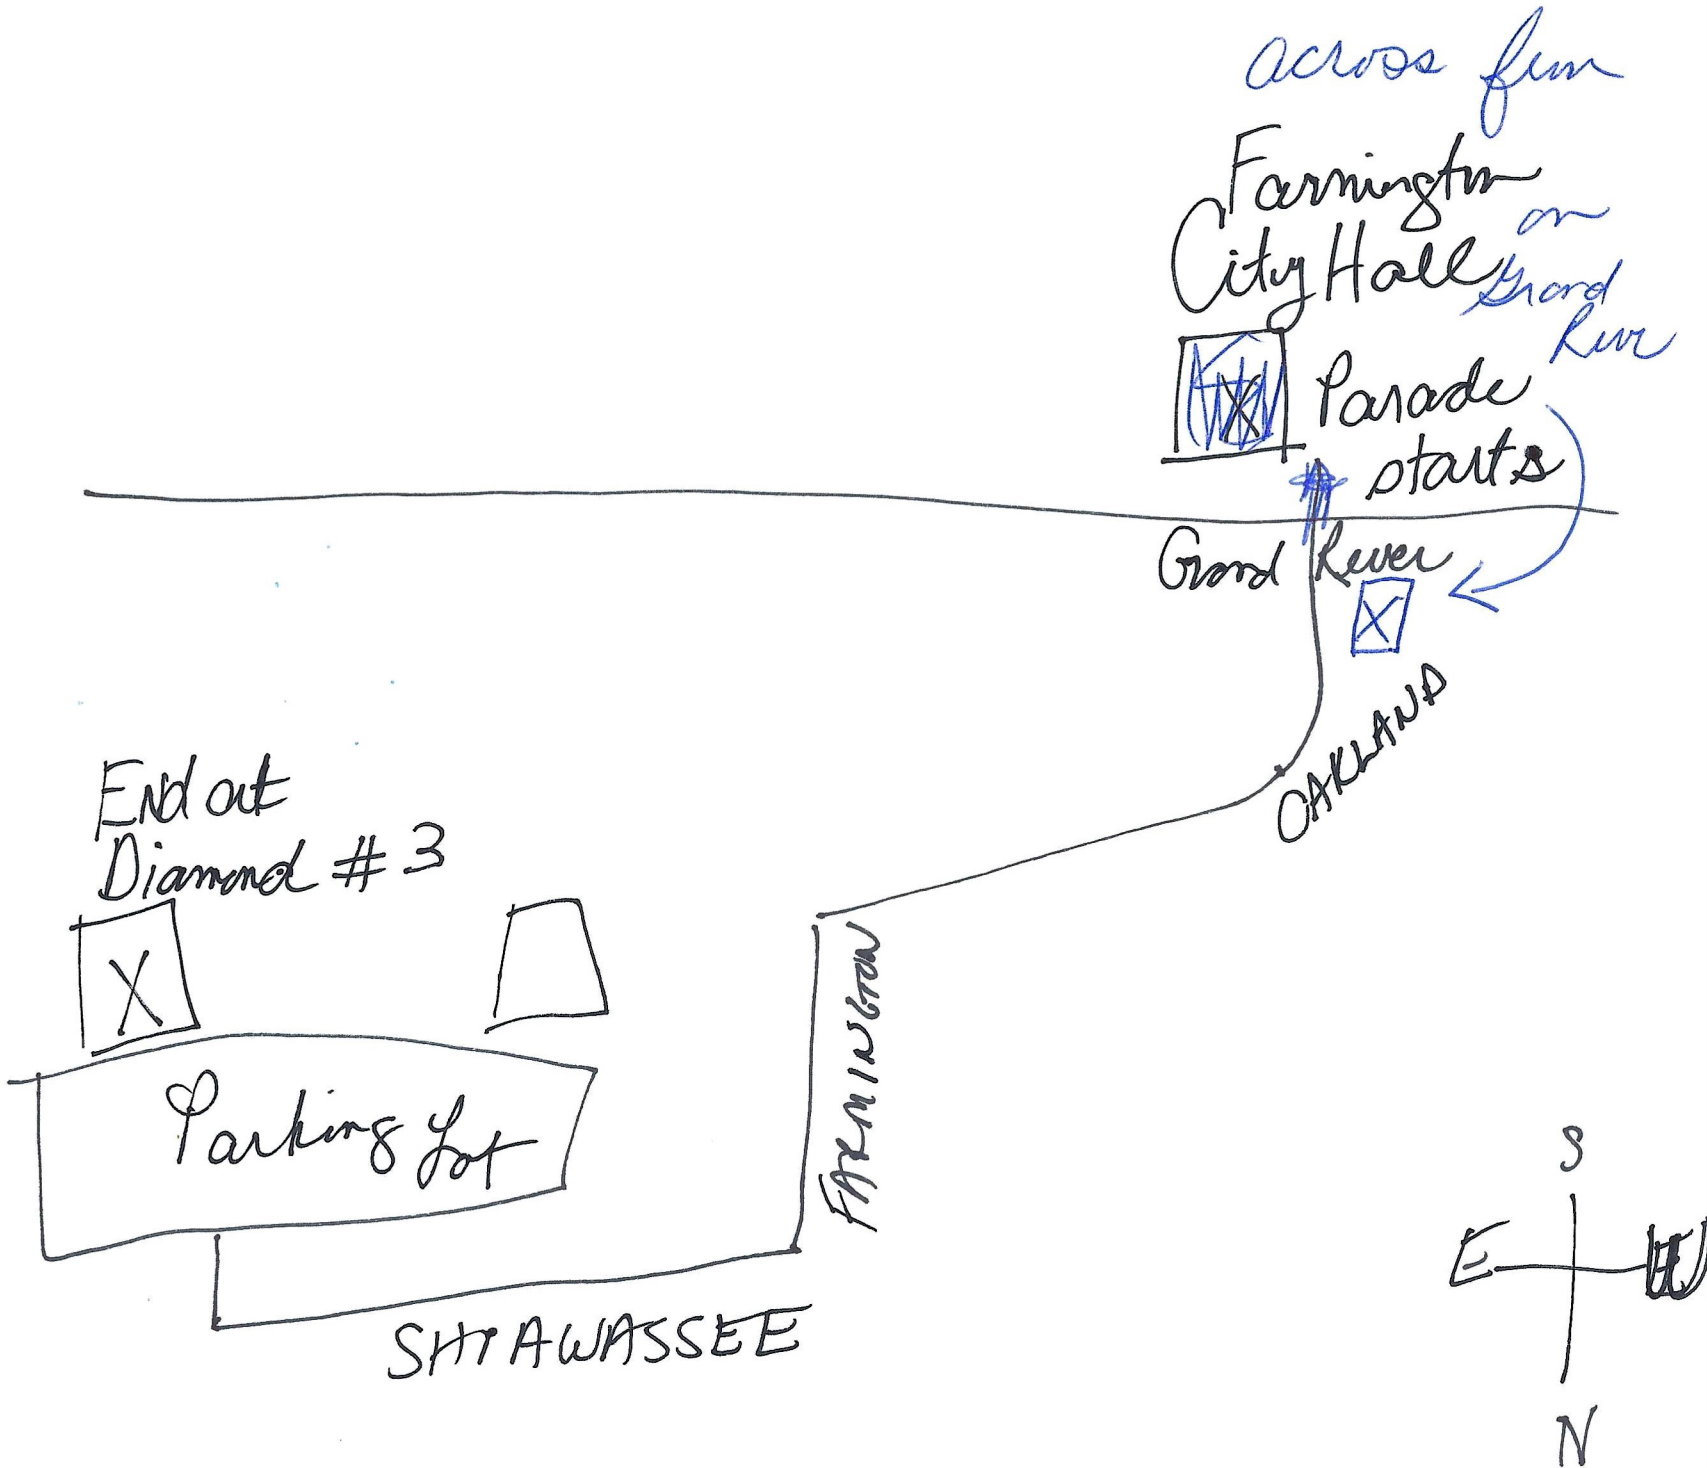 across from
Farmington
City Hall
on
Grand
River
X
Parade
starts
Grand River
X
OAKLAND
End at
Diamond #3
X
FARMINGTON
Parking Lot
SHIAWASSEE
S
E W
N